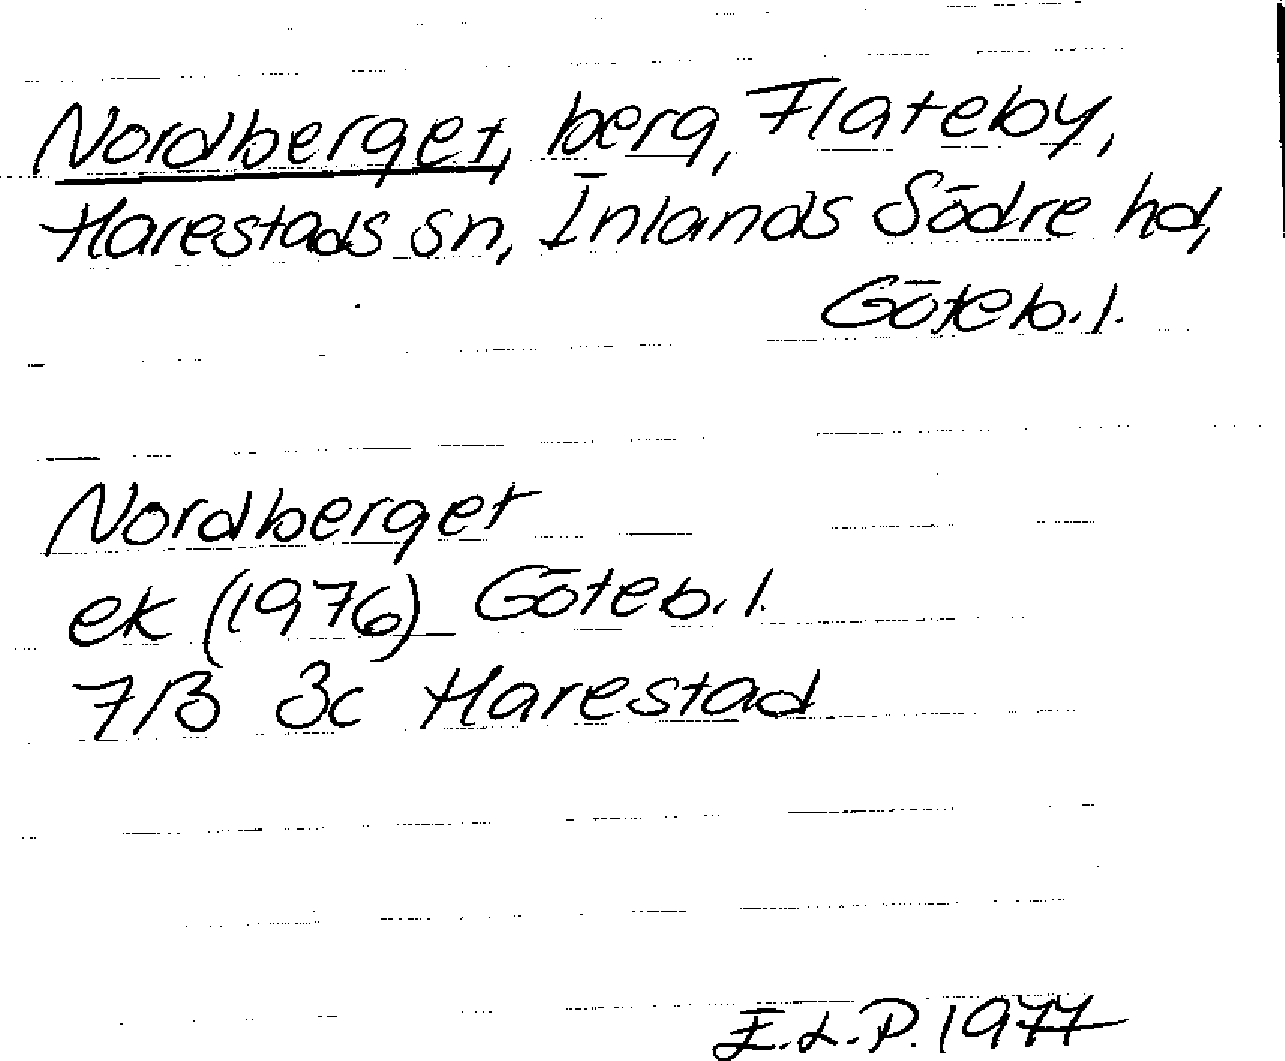 Nordberget, berg, Flateby,
Harestads sn, Inlands Södre hd,
Göteb. l.
Nordberget
ek (1976) Göteb. l.
7/B 3c Harestad
E.L.P. 1977